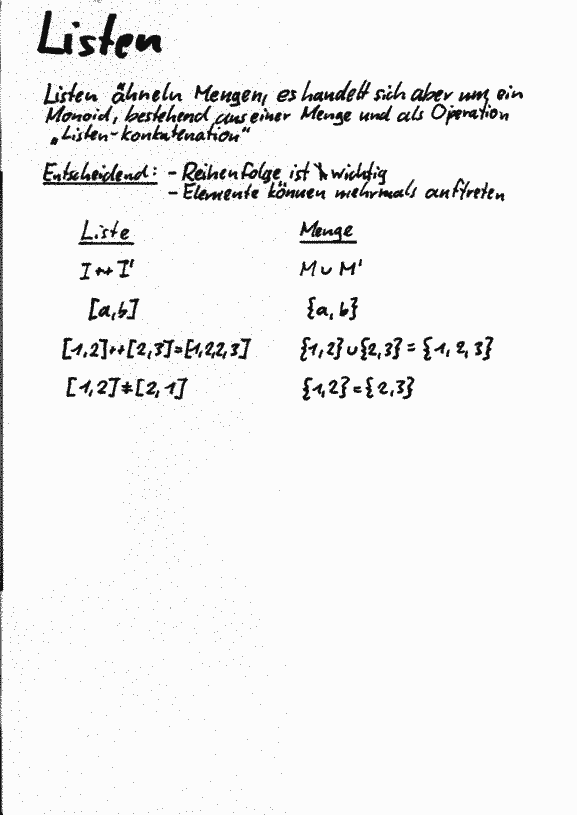 Listen
Listen ähneln Mengen, es handelt sich aber um ein
Monoid, bestehend aus einer Menge und als Operation
„Listen-konkatenation“
Entscheidend: - Reihenfolge ist wichtig
- Elemente können mehrmals auftreten
Liste Menge
I ++ I' M ∪ M'
[a,b] {a, b}
[1,2]++[2,3]=[1,2,2,3] {1,2}∪{2,3} = {1, 2, 3}
[1,2]≠[2,1] {1,2}={2,3}